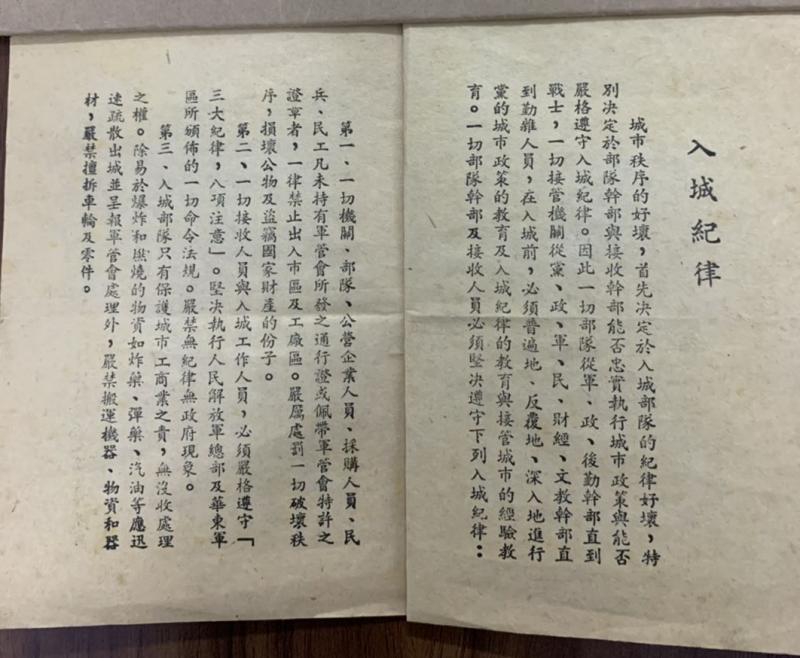 入城紀律
城市秩序的好壞，首先決定於入城部隊的紀律好壞，特
別決定於部隊幹部與接收幹部能否忠實執行城市政策與能否
嚴格遵守入城紀律。因此一切部隊從軍、政、後勤幹部直到
戰士，一切接管機關從黨、政、軍、民、財經、文教幹部直
到勤雜人員，在入城前，必須普遍地、反覆地、深入地進行
黨的城市政策的教育及入城紀律的教育與接管城市的經驗教
育。一切部隊幹部及接收人員必須堅決遵守下列入城紀律：
第一、一切機關、部隊、公營企業人員、採購人員、民
兵、民工凡未持有軍管會所發之通行證或佩帶軍管會特許之
證章者，一律禁止出入市區及工廠區。嚴厲處罰一切破壞秩
序，損壞公物及盜竊國家財產的份子。
第二、一切接收人員與入城工作人員，必須嚴格遵守「
三大紀律，八項注意」。堅決執行人民解放軍總部及華東軍
區所頒佈的一切命令法規。嚴禁無紀律無政府現象。
第三、入城部隊只有保護城市工商業之責，無沒收處理
之權。除易於爆炸和燃燒的物資如炸藥、彈藥、汽油等應迅
速疏散出城並呈報軍管會處理外，嚴禁搬運機器、物資和器
材，嚴禁擅拆車輪及零件。